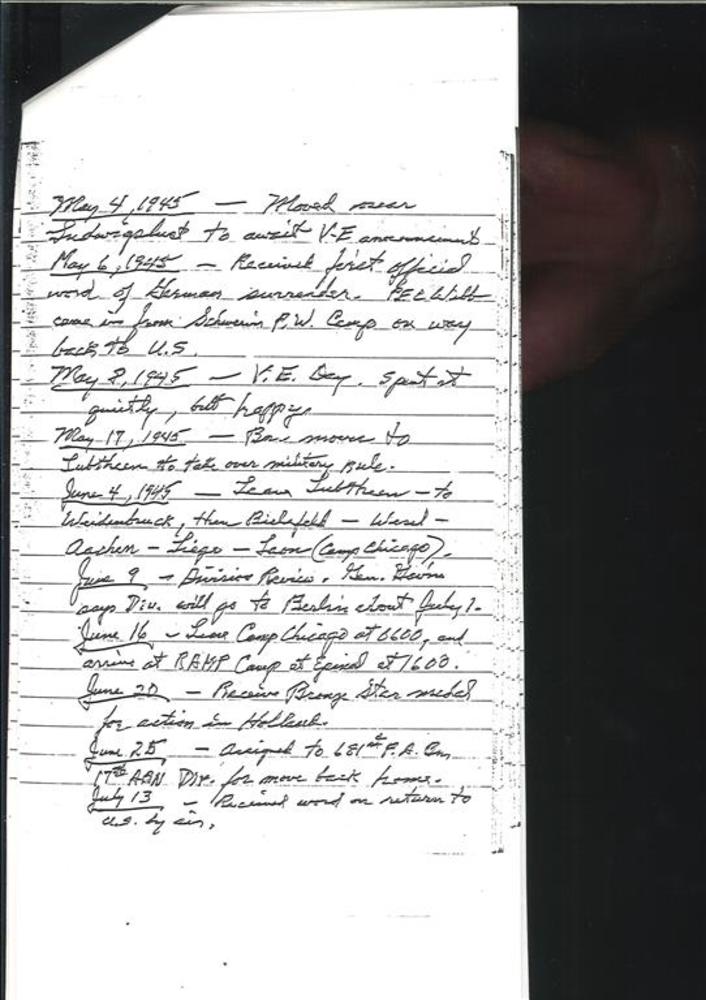 May 4, 1945 — Moved near
Ludwigslust to await V-E announcement
May 6, 1945 — Received first official
word of German surrender. Pfc Witt
came in from Schwerin P.W. Camp on way
back to U.S.
May 8, 1945 — V.E. Day. Spent it
quietly, but happy.
May 17, 1945 — Bn. moves to
Lubtheen to take over military rule.
June 4, 1945 — Leave Lubtheen – to
Weidenbruck, then Bielefeld – Wesel –
Aachen – Liege – Laon (Camp Chicago).
June 9 – Division Review. Gen. Gavin
says Div. will go to Berlin about July 1.
June 16 – Leave Camp Chicago at 0600, and
arrive at RAMP Camp at Epinal at 1600.
June 20 – Receive Bronze Star medal
for action in Holland.
June 25 – Assigned to 681st F.A. Bn,
17th ABN Div. for move back home.
July 13 – Received word on return to
U.S. by air.